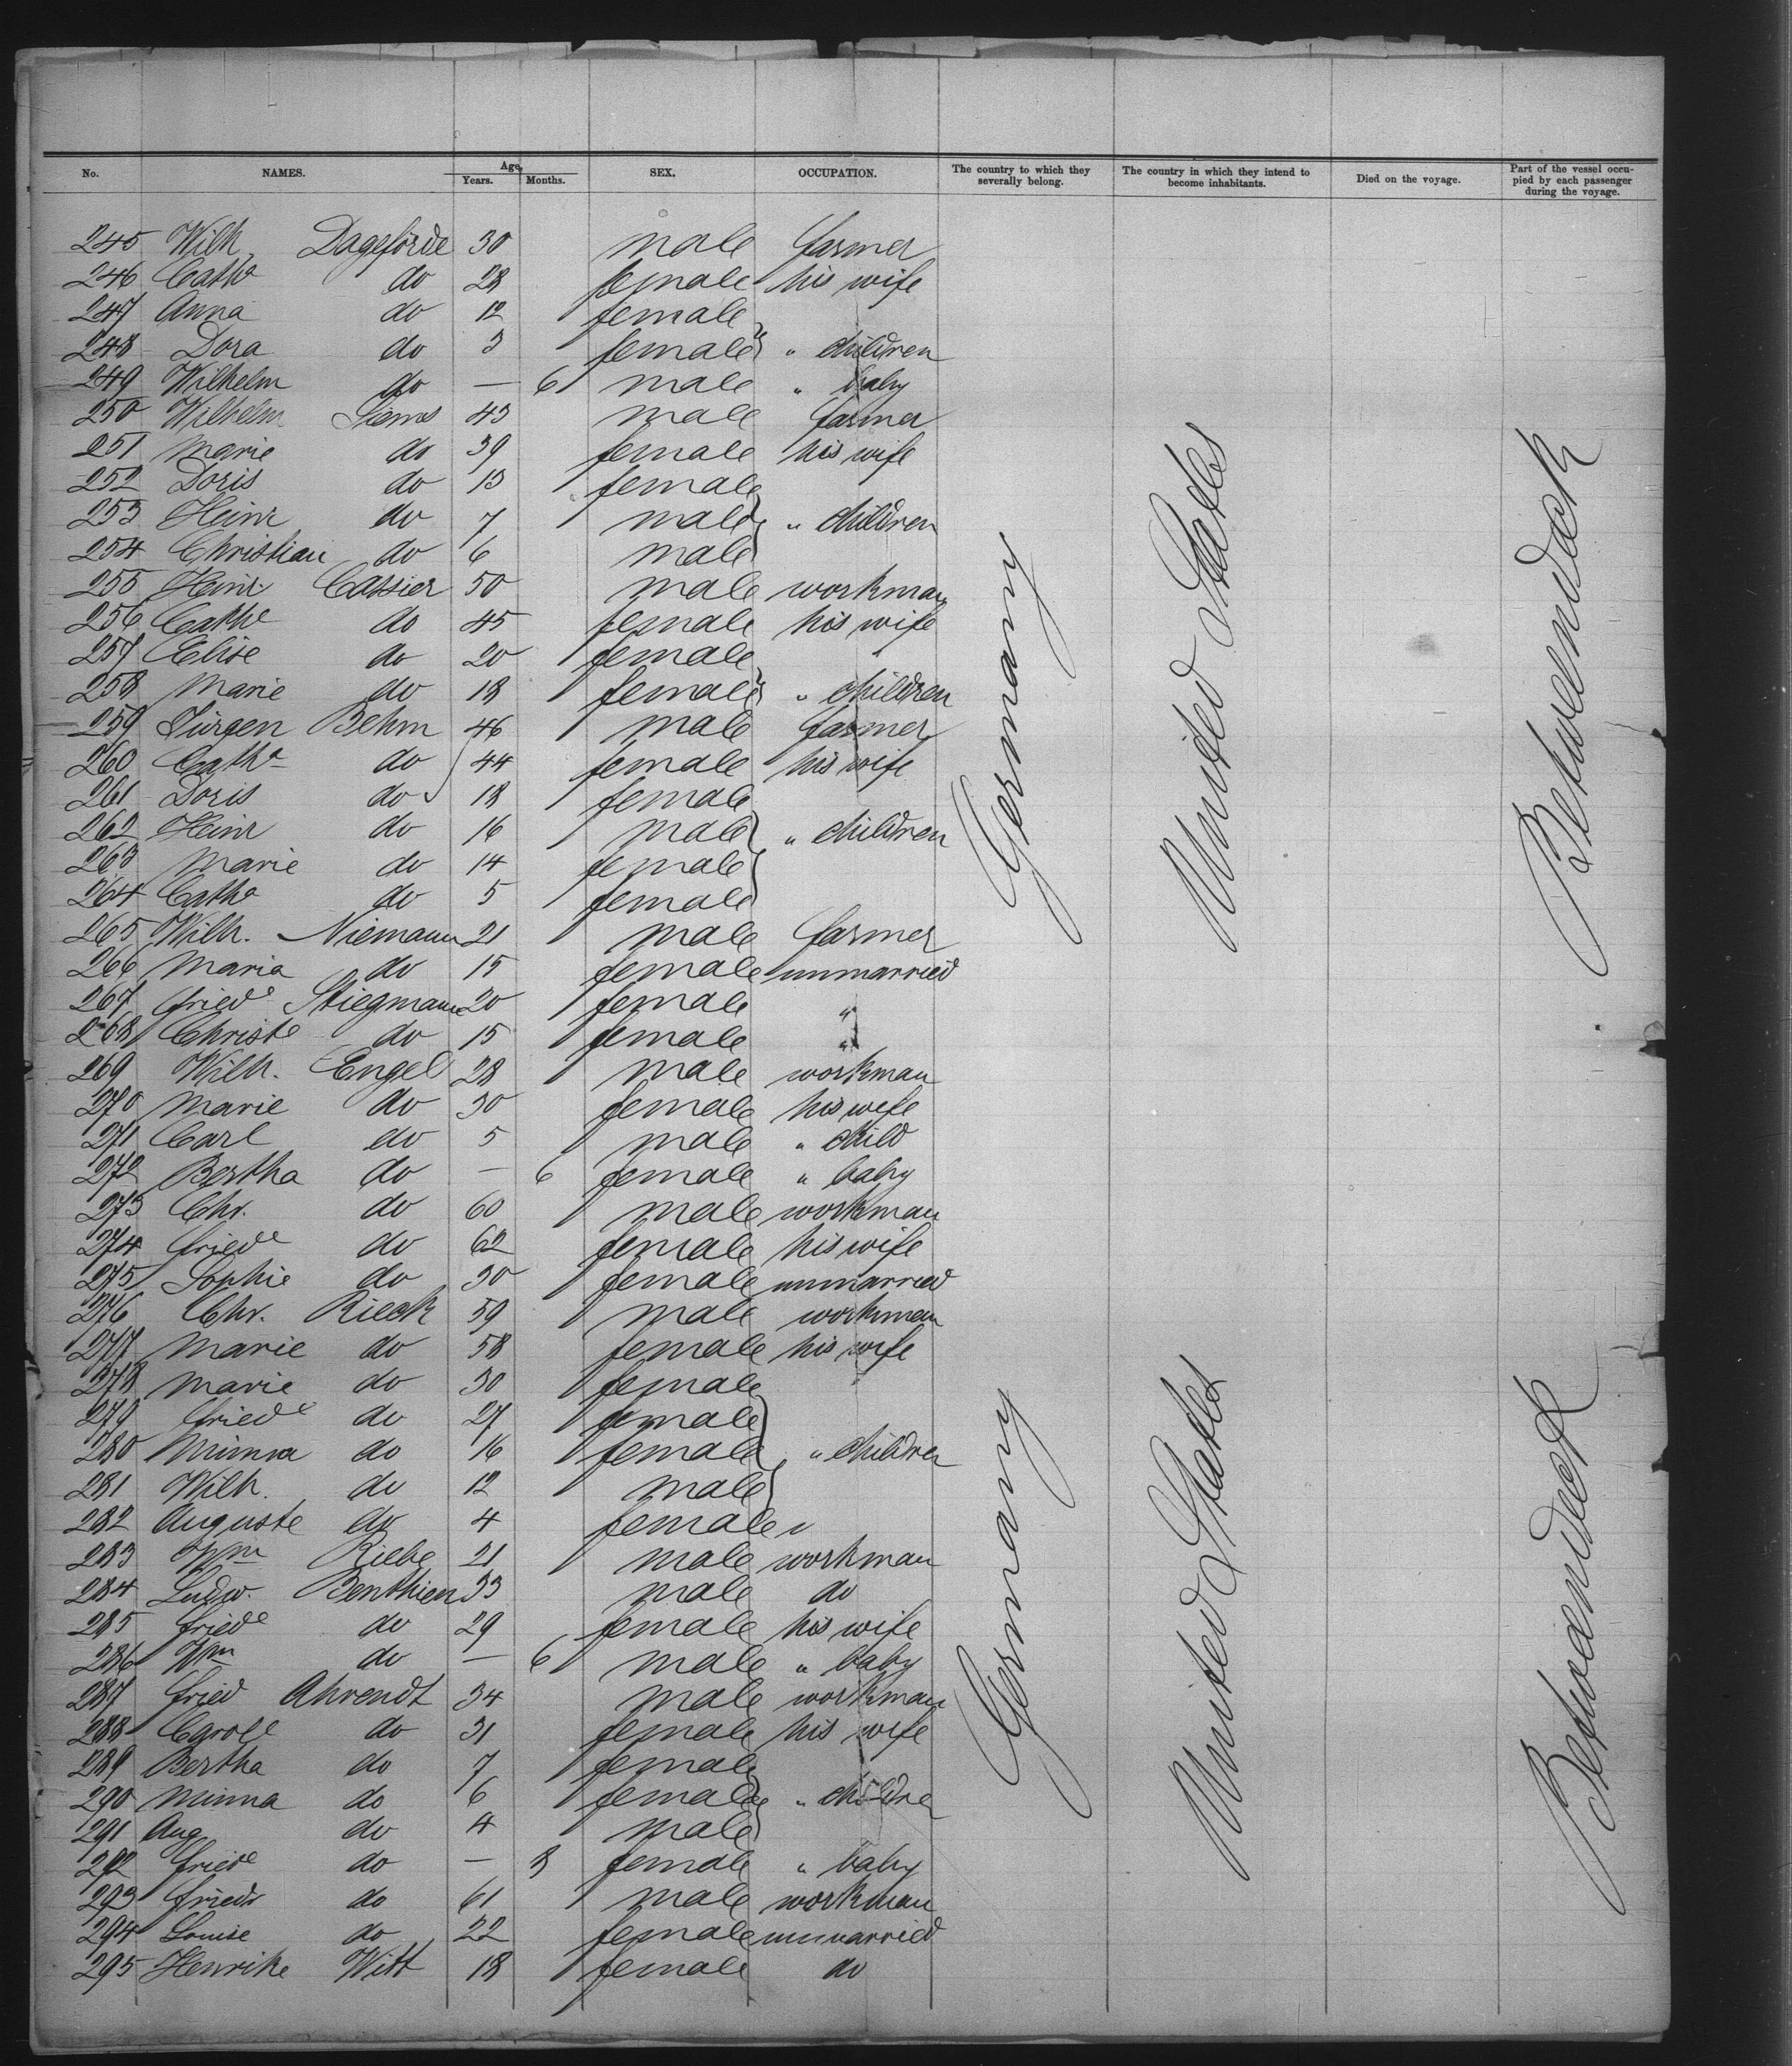 No. NAMES. Age, Years. Months. SEX. OCCUPATION. The country to which they severally belong. The country in which they intend to become inhabitants. Died on the voyage. Part of the vessel occupied by each passenger during the voyage.
245 Wilh. Dageförde 30 male farmer
246 Catha do 28 female his wife
247 Anna do 12 female
248 Dora do 3 female " children
249 Wilhelm do — 6 male " baby
250 Wilhelm Siems 43 male farmer
251 Marie do 39 female his wife
252 Doris do 13 female
253 Heinr do 7 male " children
254 Christian do 6 male
255 Heinr Cassier 50 male workman
256 Cathe do 45 female his wife
257 Elise do 20 female
258 Marie do 18 female " children
259 Jürgen Behm 46 male farmer
260 Catha do 44 female his wife
261 Doris do 18 female
262 Heinr do 16 male " children
263 Marie do 14 female
264 Catha do 5 female
265 Wilh. Niemann 21 male farmer
266 Maria do 15 female unmarried
267 Friede Stiegmann 20 female "
268 Christe do 15 female "
269 Wilh. Engel 28 male workman
270 Marie do 30 female his wife
271 Carl do 5 male " child
272 Bertha do — 6 female " baby
273 Chr. do 60 male workman
274 Friede do 62 female his wife
275 Sophie do 30 female unmarried
276 Chr. Rieck 59 male workman
277 Marie do 58 female his wife
278 Marie do 30 female
279 Friede do 27 female
280 Minna do 16 female " children
281 Wilh. do 12 male
282 Auguste do 4 female
283 Wm Riebe 21 male workman
284 Ludw. Benthien 33 male do
285 Friede do 29 female his wife
286 Wm do — 6 male " baby
287 Fried Ahrendt 34 male workman
288 Carole do 31 female his wife
289 Bertha do 7 female
290 Minna do 6 female " children
291 Aug do 4 male
292 Friede do — 8 female " baby
293 Friedr do 61 male workman
294 Louise do 22 female unmarried
295 Henrike Witt 18 female do
Germany
United States
Betweendeck
Germany
United States
Betweendeck